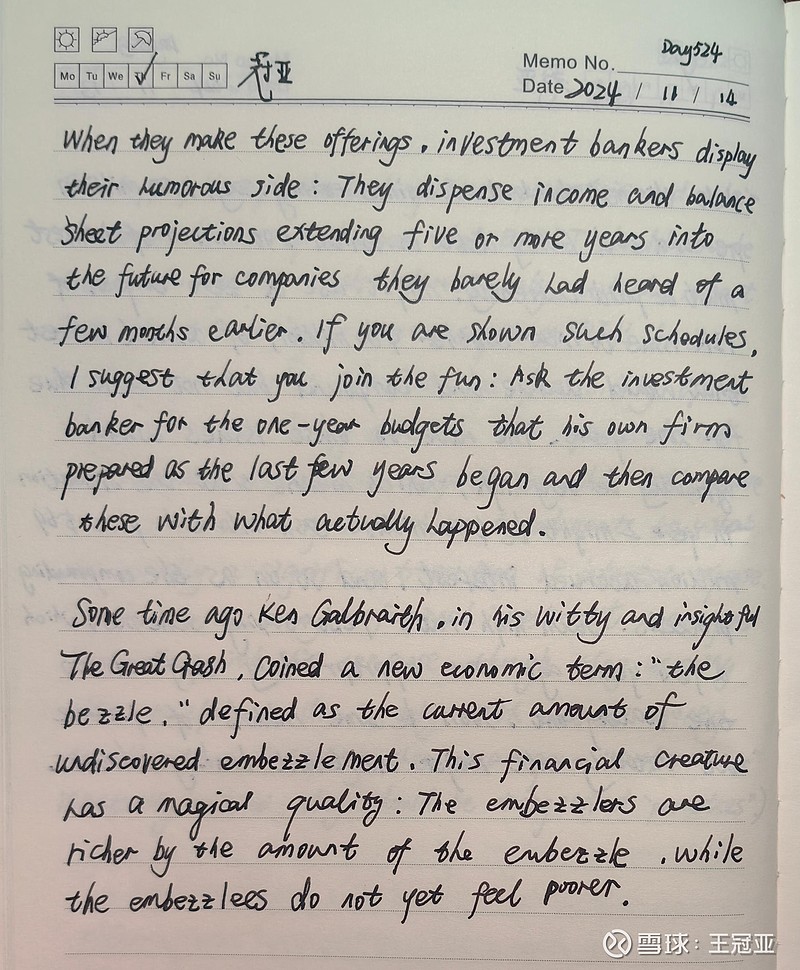 Day524
Mo Tu We Th Fr Sa Su 冠亚 Memo No.
Date 2024 / 11 / 14
When they make these offerings, investment bankers display
their humorous side: They dispense income and balance
sheet projections extending five or more years into
the future for companies they barely had heard of a
few months earlier. If you are shown such schedules,
I suggest that you join the fun: Ask the investment
banker for the one-year budgets that his own firm
prepared as the last few years began and then compare
these with what actually happened.
Some time ago Ken Galbraith, in his witty and insightful
The Great Crash, coined a new economic term: "the
bezzle," defined as the current amount of
undiscovered embezzlement. This financial creature
has a magical quality: The embezzlers are
richer by the amount of the embezzle, while
the embezzlees do not yet feel poorer.
雪球：王冠亚